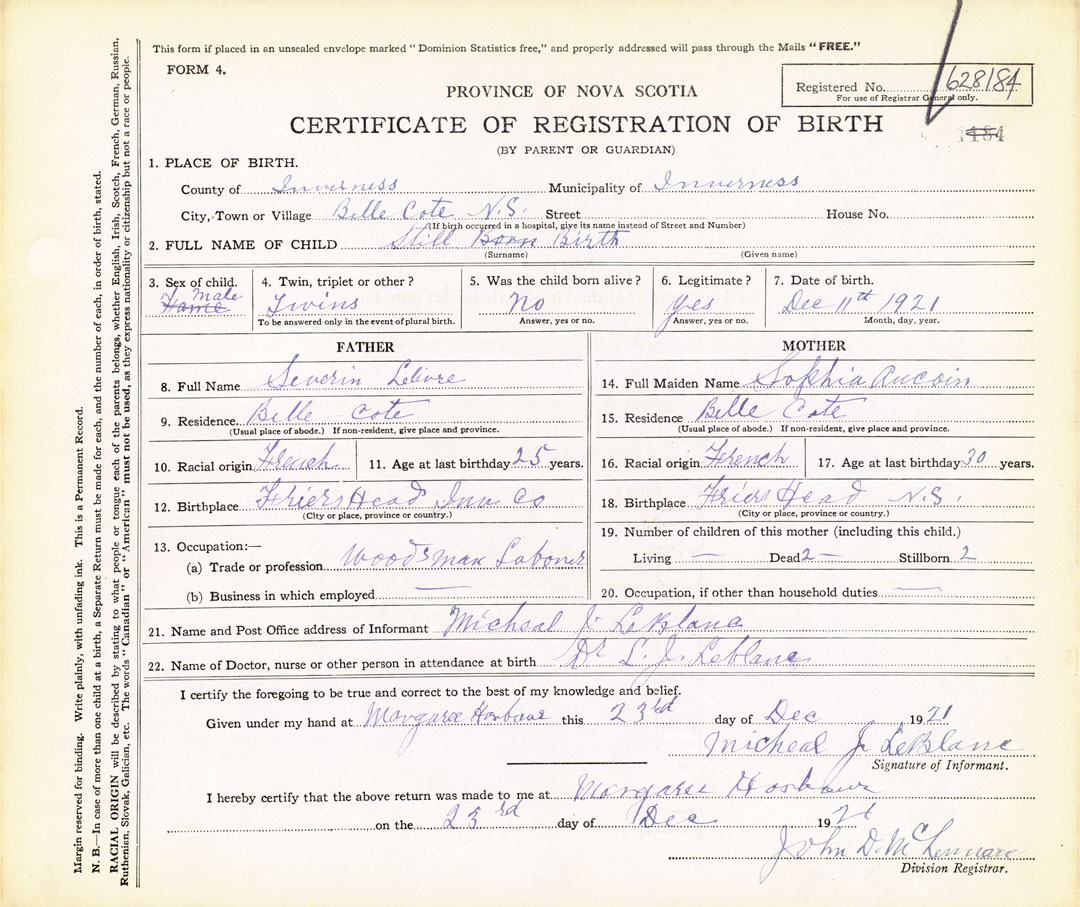 This form if placed in an unsealed envelope marked "Dominion Statistics free," and properly addressed will pass through the Mails "FREE."
FORM 4.
Registered No. 628184
For use of Registrar General only.
PROVINCE OF NOVA SCOTIA
CERTIFICATE OF REGISTRATION OF BIRTH
1484
(BY PARENT OR GUARDIAN)
1. PLACE OF BIRTH.
County of Inverness Municipality of Inverness
City, Town or Village Belle Cote N.S. Street House No.
(If birth occurred in a hospital, give its name instead of Street and Number)
2. FULL NAME OF CHILD Still Born Birth
(Surname) (Given name)
3. Sex of child. 4. Twin, triplet or other? 5. Was the child born alive? 6. Legitimate? 7. Date of birth.
Male Twins No Yes Dec 11th 1921
To be answered only in the event of plural birth. Answer, yes or no. Answer, yes or no. Month, day, year.
FATHER MOTHER
8. Full Name Severin Lelivre 14. Full Maiden Name Sophia Aucoin
9. Residence. Belle Cote 15. Residence Belle Cote
(Usual place of abode.) If non-resident, give place and province. (Usual place of abode.) If non-resident, give place and province.
10. Racial origin French 11. Age at last birthday 25 years. 16. Racial origin French 17. Age at last birthday 30 years.
12. Birthplace Friers Head Inv Co 18. Birthplace Friars Head N.S.
(City or place, province or country.) (City or place, province or country.)
19. Number of children of this mother (including this child.)
13. Occupation:—
Living — Dead 2 — Stillborn 2
(a) Trade or profession Woodsman Laborer
(b) Business in which employed — 20. Occupation, if other than household duties —
21. Name and Post Office address of Informant Micheal J. LeBlanc
22. Name of Doctor, nurse or other person in attendance at birth Dr L. J. Leblanc
I certify the foregoing to be true and correct to the best of my knowledge and belief.
Given under my hand at Margaree Harbour this 23rd day of Dec 1921
Micheal J. LeBlanc
Signature of Informant.
I hereby certify that the above return was made to me at Margaree Harbour
on the 23rd day of Dec 1921
John D. McLennan
Division Registrar.
Margin reserved for binding. Write plainly, with unfading ink. This is a Permanent Record.
N. B.—In case of more than one child at a birth, a Separate Return must be made for each, and the number of each, in order of birth, stated.
RACIAL ORIGIN will be described by stating to what people or tongue each of the parents belongs, whether English, Irish, Scotch, French, German, Russian,
Ruthenian, Slovak, Galician, etc. The words "Canadian" or "American" must not be used, as they express nationality or citizenship but not a race or people.